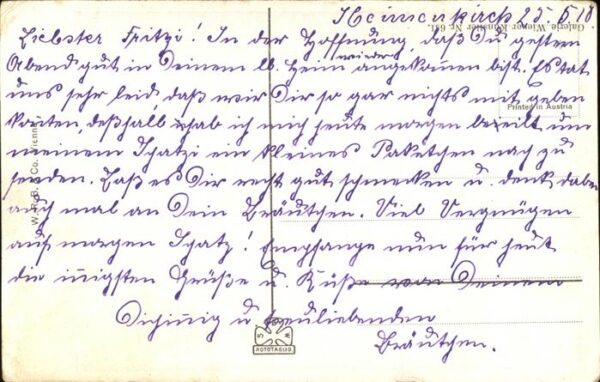 Heimenkirch 25.5.18.
Liebster Fritzi! In der Hoffnung, daß Du gestern
Abend gut in Deinem lb. Heim wieder angekommen bist. Es tat
uns sehr leid, daß wir Dir so gar nichts mit geben
konnten, deßhalb hab ich mich heute morgen beeilt um
meinem Schatzi ein kleines Paketchen nach zu
senden. Laß es Dir recht gut schmecken u. denk dabei
auch mal an Dein Bräutchen. Viel Vergnügen
auf morgen Schatz! Empfange nun für heut
die innigsten Grüße u. Küße von Deinem
Dich innig u treuliebenden
Bräutchen.
Galerie Wiener Künstler Nr. 681.
Printed in Austria